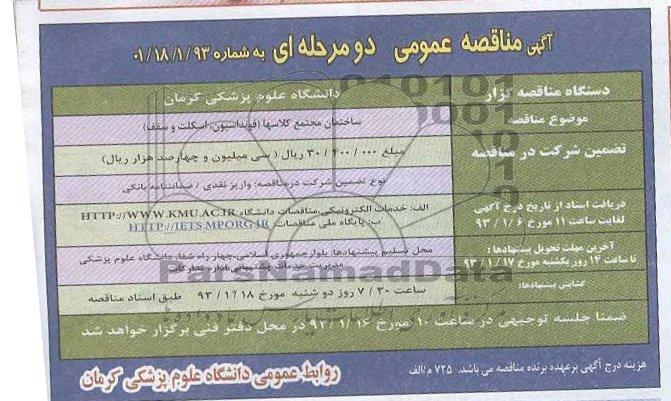 آگهی مناقصه عمومی دو مرحله ای به شماره ۰۱/۱۸/۱/۹۳
دستگاه مناقصه گزار
دانشگاه علوم پزشکی کرمان
موضوع مناقصه
ساختمان مجتمع کلاسها (فونداسیون، اسکلت و سقف)
تضمین شرکت در مناقصه
مبلغ ۳۰/۴۰۰/۰۰۰ ریال ( سی میلیون و چهارصد هزار ریال)
نوع تضمین شرکت درمناقصه: واریز نقدی / ضمانتنامه بانکی
دریافت اسناد از تاریخ درج آگهی
لغایت ساعت ۱۱ مورخ ۹۳/۱/۶
الف: خدمات الکترونیکی،مناقصات دانشگاه HTTP://WWW.KMU.AC.IR
ب: پایگاه ملی مناقصات: HTTP://IETS.MPORG.IR
آخرین مهلت تحویل پیشنهادها :
تا ساعت ۱۴ روز یکشنبه مورخ ۹۳/۱/۱۷
محل تسلیم پیشنهادها: بلوارجمهوری اسلامی،چهار راه شفا، دانشگاه علوم پزشکی
مدیریت خدمات پشتیبانی، اداره تدارکات
گشایش پیشنهادها:
ساعت ۷/۳۰ روز دو شنبه مورخ ۹۳/۱/۱۸ طبق اسناد مناقصه
ضمنا جلسه توجیهی در ساعت ۱۰ مورخ ۹۳/۱/۱۶ در محل دفتر فنی برگزار خواهد شد
هزینه درج آگهی برعهده برنده مناقصه می باشد. ۷۲۵ م/الف
روابط عمومی دانشگاه علوم پزشکی کرمان
ParsNamadData